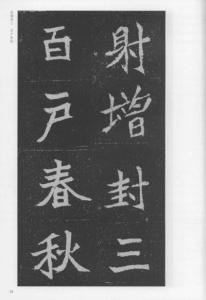 射增封三
百戶春秋